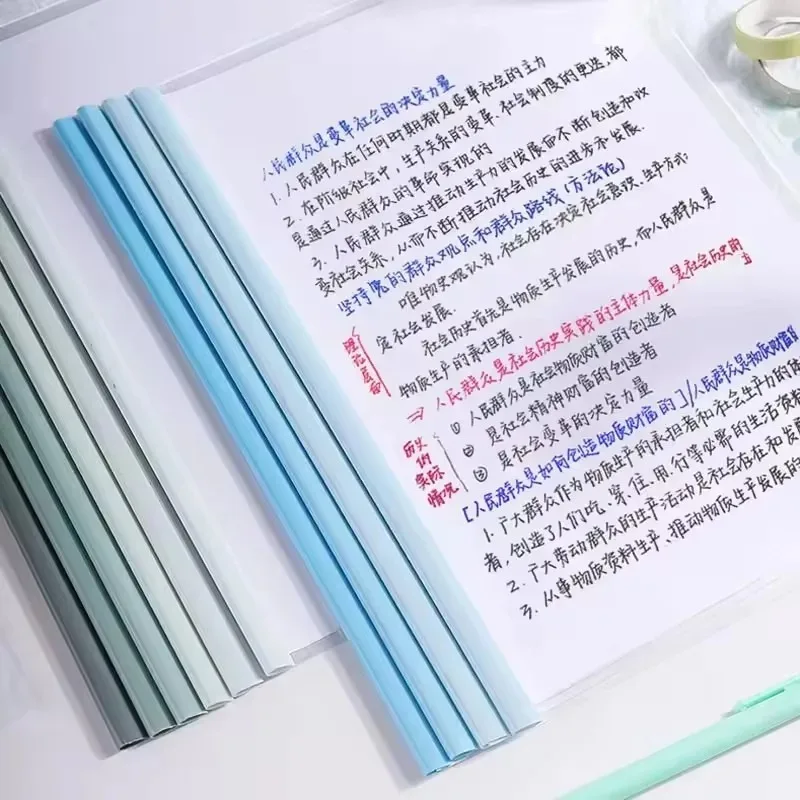 人民群众是变革社会的决定力量
1. 人民群众在任何时期都是变革社会的主力
2. 在阶级社会中，生产关系的变革、社会制度的更迭，都
是通过人民群众的革命实现的
3. 人民群众通过推动生产力的发展而不断创造和改
变社会关系，从而不断推动社会历史的进步和发展.
坚持的群众观点和群众路线（方法论）
唯物史观认为，社会存在决定社会意识、生产方式
定社会发展.
社会历史首先是物质生产发展的历史，而人民群众是
物质生产的承担者.
理论层面
⇒ 人民群众是社会历史实践的主体力量，是社会历史的主
历史的实际情况
① 人民群众是社会物质财富的创造者
② 是社会精神财富的创造者
③ 是社会变革的决定力量
[人民群众是如何创造物质财富的]/人民群众是物质财富的
1. 广大群众作为物质生产的承担者和社会生产力的
者，创造了人们吃、穿、住、用、行等必需的生活资料
2. 广大劳动群众的生产活动是社会存在和发展
3. 从事物质资料生产、推动物质生产发展的